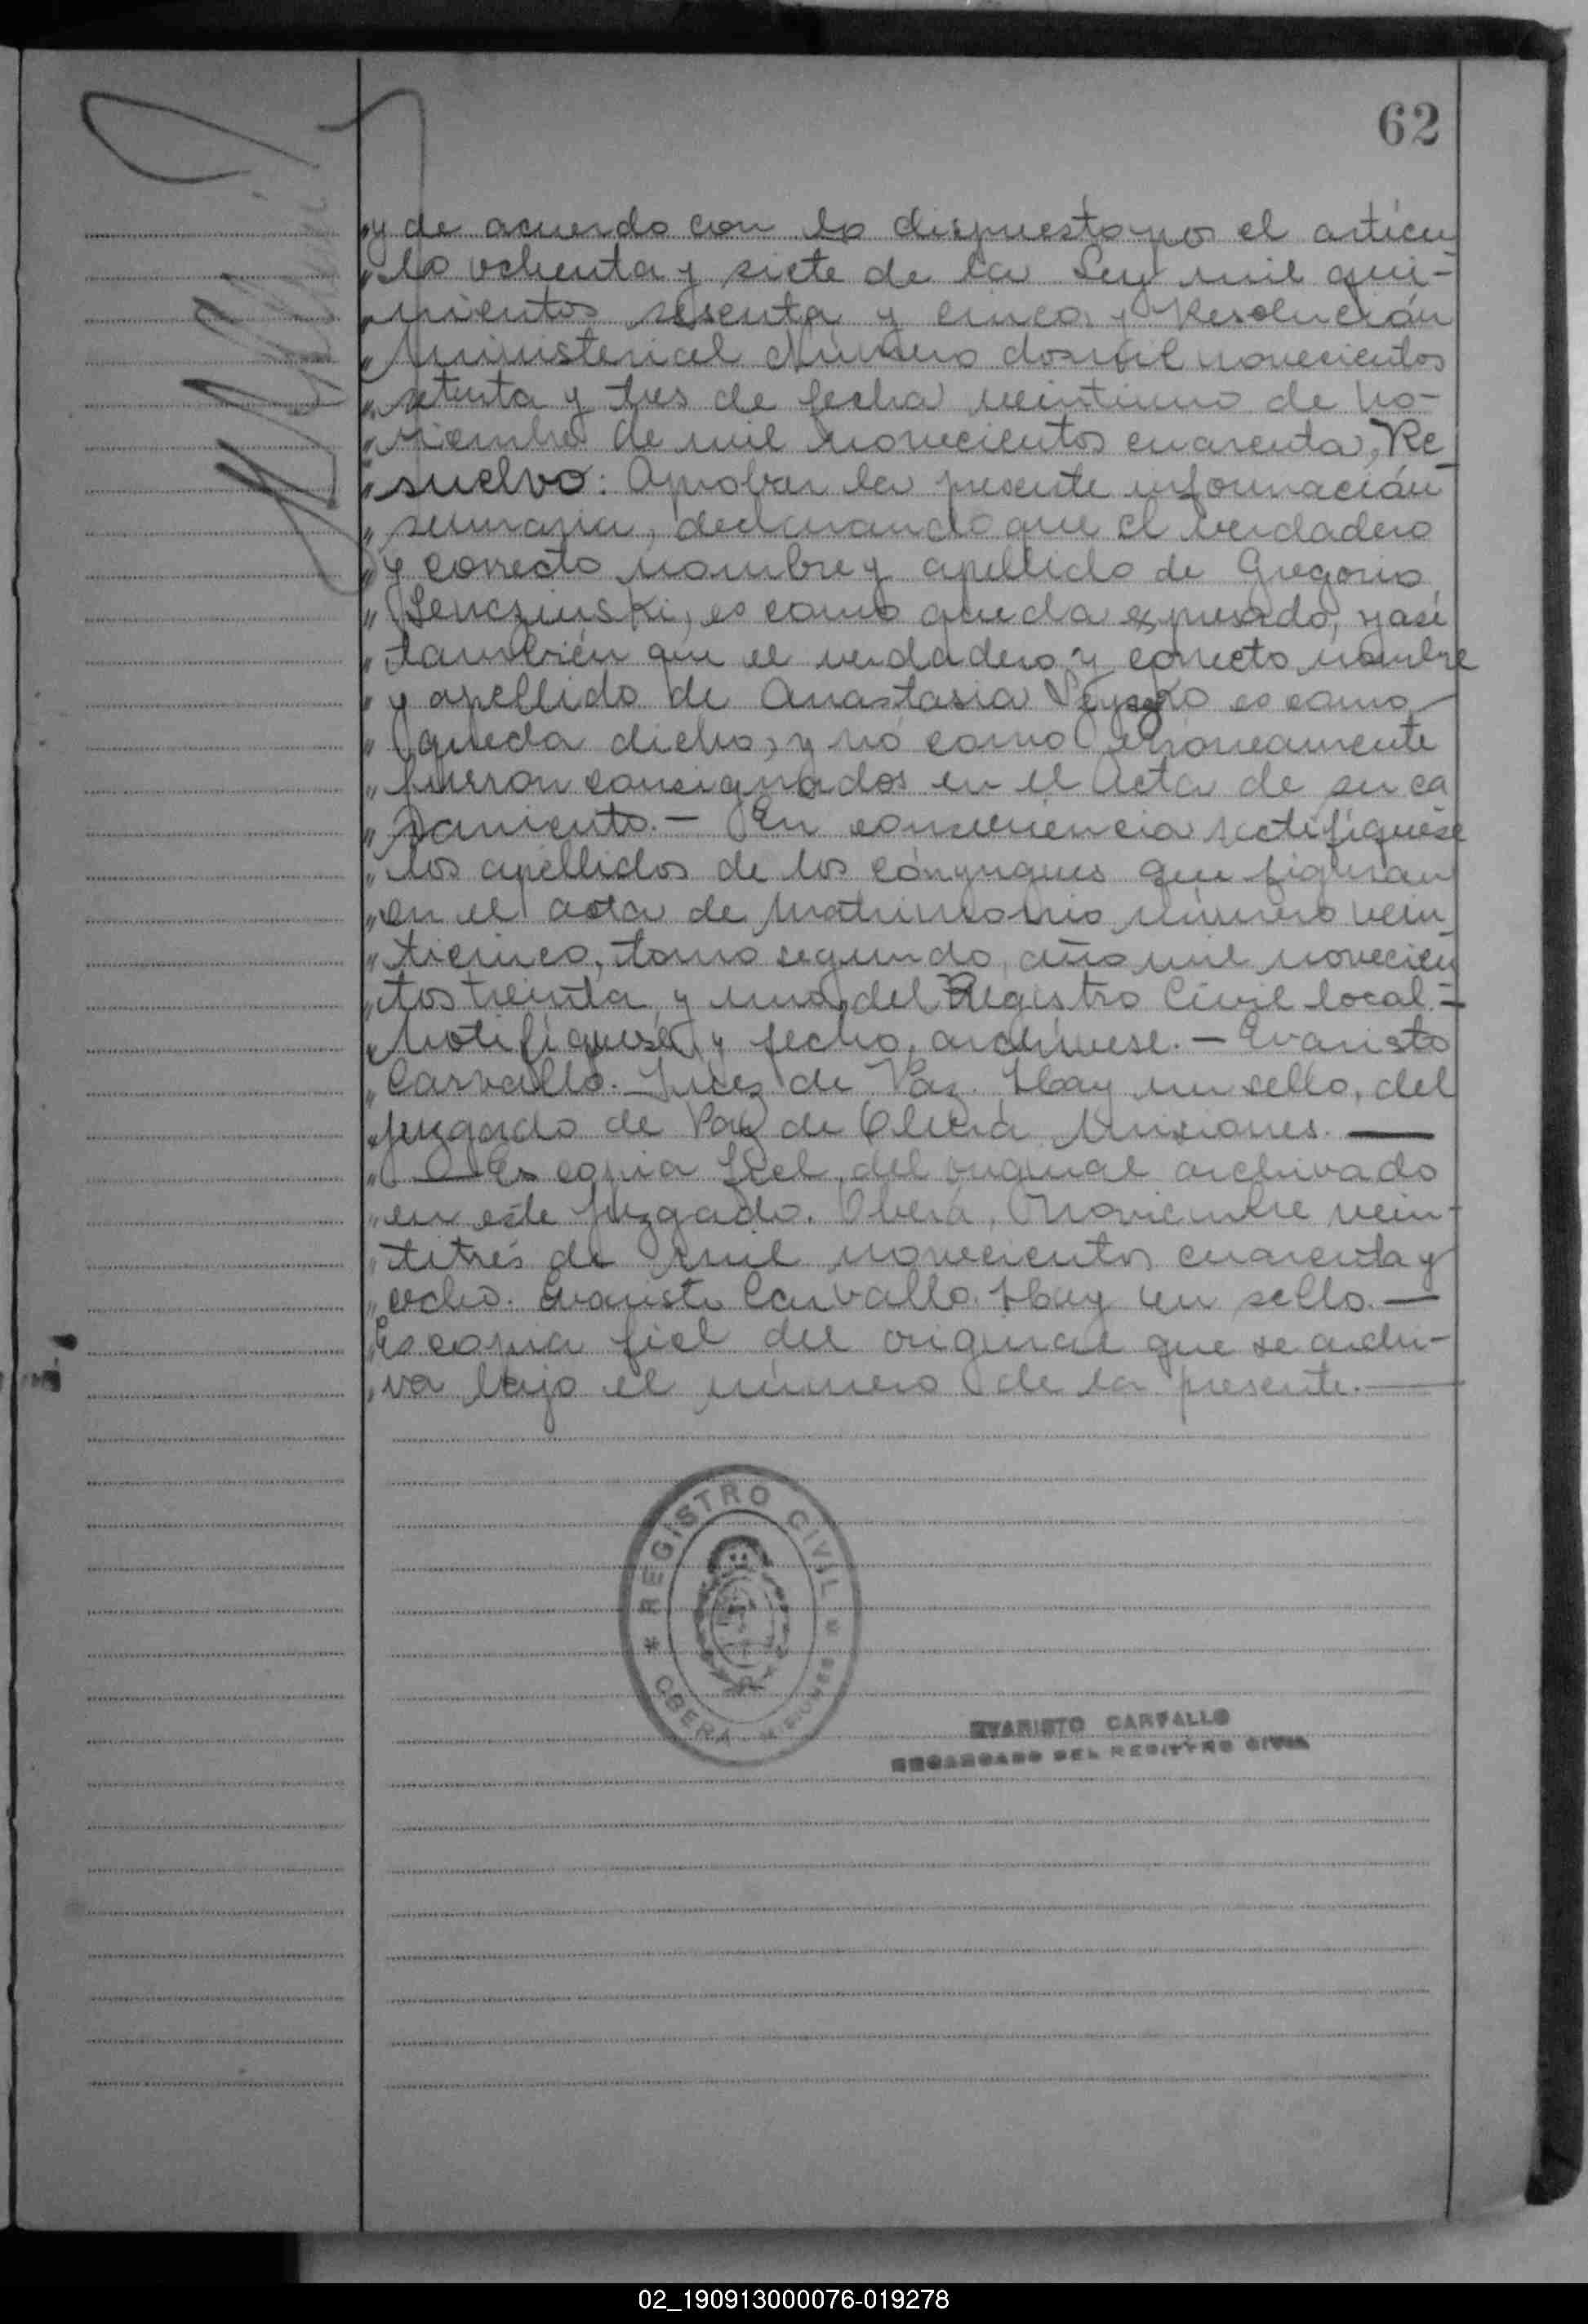 62
"y de acuerdo con lo dispuesto por el artícu
"lo ochenta y siete de la Ley mil qui-
"nientos sesenta y cinco y Resolución
"Ministerial Número dos mil novecientos
"setenta y tres de fecha veintiuno de no-
"viembre de mil novecientos cuarenta, Re
"suelvo: Aprobar la presente información
"sumaria, declarando que el verdadero
"y correcto nombre y apellido de Gregorio
"Senczinski, es como queda expresado, y asi
"también que el verdadero y correcto nombre
"y apellido de Anastasia es como
"queda dicho, y nó como erróneamente
"fueron consignados en el Acta de su ca
"samiento.— En consecuencia rectifíquese
"los apellidos de los cónyugues que figuran
"en el acta de matrimonio número vein
"ticinco, tomo segundo, año mil novecien
"tos treinta y uno, del Registro Civil local.=
"Notifíquese y fecho, archívese.— Evaristo
"Carvallo. Juez de Paz. Hay un sello, del
"Juzgado de Paz de Oberá Misiones. —
" — Es copia fiel, del original archivado
"en este Juzgado. Oberá, Noviembre vein-
"titrés de mil novecientos cuarenta y
"ocho. Evaristo Carvallo. Hay un sello.—
"Es copia fiel del original que se archi-
"va bajo el número de la presente.—
* REGISTRO CIVIL *
OBERÁ - MISIONES
EVARISTO CARVALLO
ENCARGADO DEL REGISTRO CIVIL
02_190913000076-019278